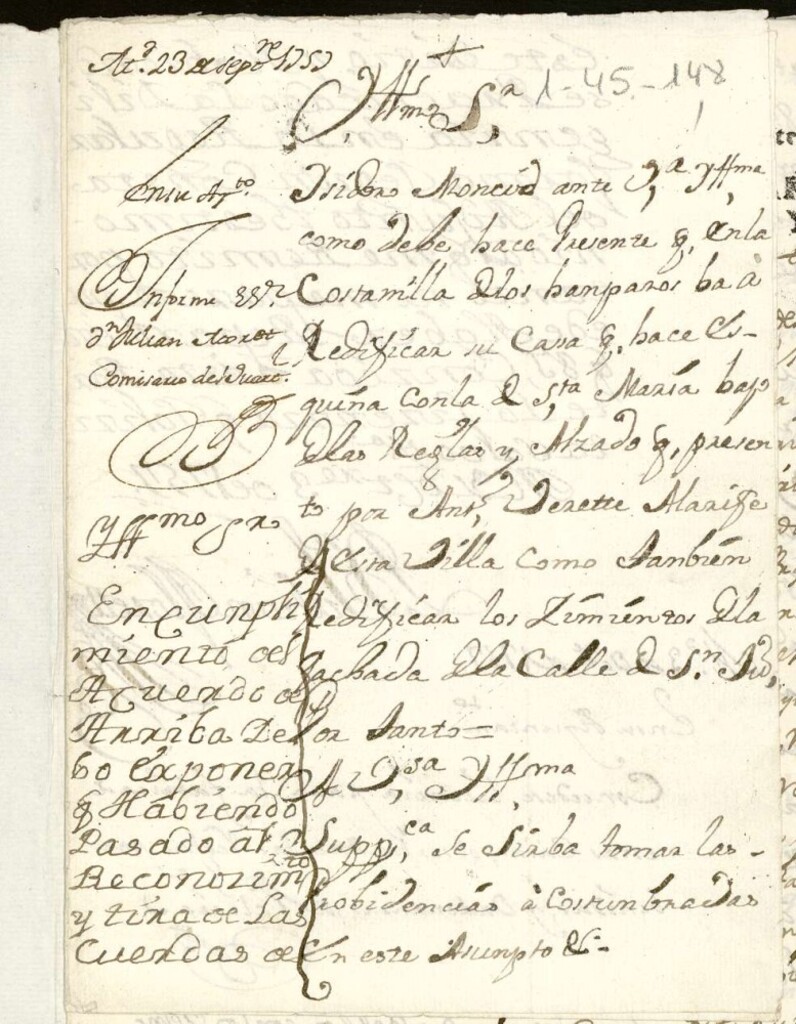 At.º 23 de sepre 1757
+
Yllmo Sr
1-45-148
Ensu Ayto.
Informe el Sr.
dn Julian
Comisario del Quartl.
Yllmo Sr
En cunpli
miento del
Acuerdo de
Arriba De
bo exponer
q Habiendo
Pasado al
Reconozimto
y tira de Las
Cuerdas de
Isidoro Moncid ante V,a Yllma
como debe hace Presente q, en la
Costanilla de los hanparos ba a
Redificar su Casa q, hace Es-
quina con la de Sta María bajo
de las Reglas y Alzado q, presen
to por Anto, Berette Alarife
de esta Villa como tanbién
Redificar los Zimientos de la
fachada de la Calle de Sn.
Por tanto=
A V,sa Yllma
Suppca, se sirba tomar las-
Probidencias à costunbradas
en este Asunpto &-